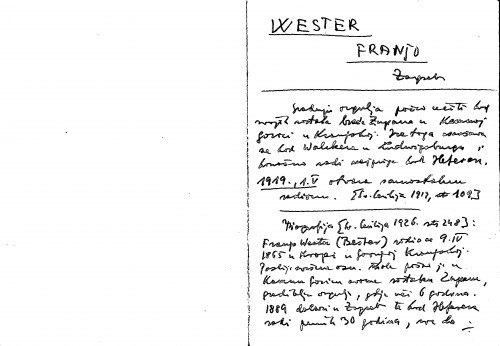 WESTER
FRANJO
Zagreb
Gradnju orgulja počeo učiti kod
svojih rođaka braće Zupana u Kamnoj
gorici u Kranjskoj. Iza toga
se kod Walckera u Ludwigsburgu i
konačno radi kod Heferera.
1919., 1. V otvara samostalnu
radionu. [Sv. Cecilija 1919, str 109]
Biografija [Sv. Cecilija 1926. str 248]:
Franjo Wester (Bešter) rodio se 9. IV
1865 u Kropi u Gornjoj Kranjskoj.
Poslije osnovne škole počeo je u
Kamnoj Gorici kod rođaka Zupana,
graditelja orgulja, gdje uči 6 godina.
1889 dolazi u Zagreb te kod Heferera
radi punih 30 godina, sve do